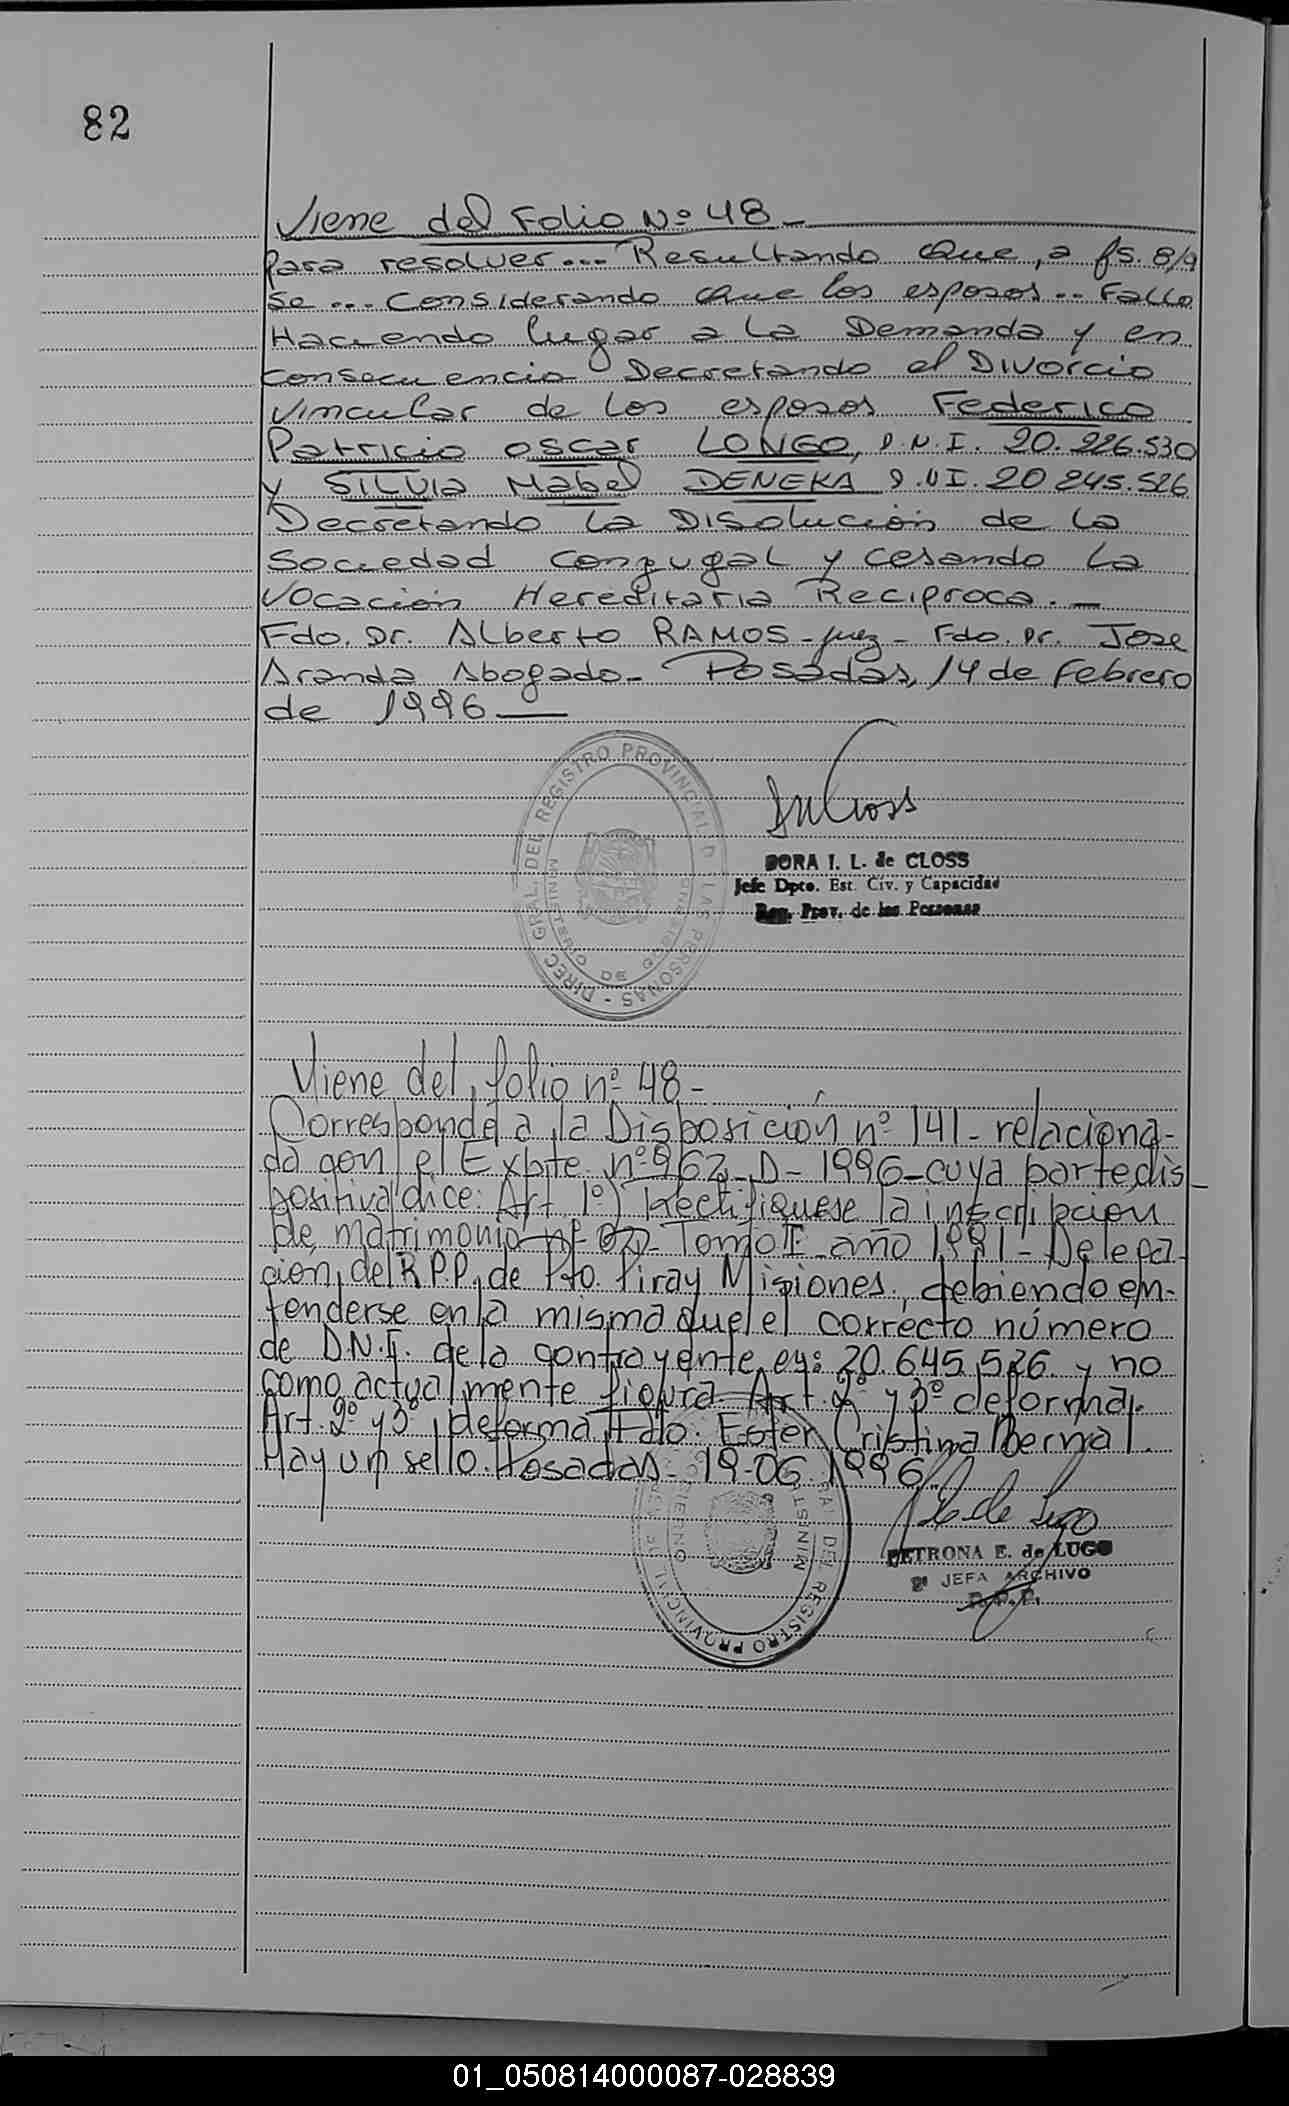 82
Viene del Folio Nº 48 -
para resolver... Resultando Que, a fs. 8/9
se ... Considerando Que los esposos... Fallo
Haciendo lugar a la Demanda y en
consecuencia Decretando el Divorcio
vincular de los esposos Federico
Patricio Oscar LONGO, D.N.I. 20.226.530
y SILVIA Mabel DENEKA D.NI. 20 245.526
Decretando la Disolución de la
Sociedad Conyugal y cesando la
Vocación Hereditaria Reciproca. -
Fdo. Dr. Alberto RAMOS - Juez - Fdo. Dr. Jose
Aranda Abogado - Posadas, 14 de Febrero
de 1996 —
DIREC GRAL. DEL REGISTRO PROVINCIAL D LAS PERSONAS -
MINISTERIO DE GOBIERNO
DORA I. L. de CLOSS
Jefe Dpto. Est. Civ. y Capacidad
Reg. Prov. de las Personas
Viene del folio nº 48 -
Corresponde a la Disposición nº 141 - relaciona-
da con el Expte. nº 962 - D - 1996 - cuya parte dis-
positiva dice: Art 1º) Rectifiquese la inscripcion
de matrimonio nº Tomo I año 1991 - Delega-
cion del R.P.P. de Pto. Piray Misiones, debiendo en-
tenderse en la misma que el correcto número
de D.N.I. de la contrayente es: 20.645.526 y no
como actualmente figura Art. 2º y 3º de forma.
Art. 2º y 3º de forma Fdo. Ester Cristina Bernal.
Hay un sello. Posadas - 19-06-1996.
DEL REGISTRO PROVINCIAL DE
MINIST IERNO
PETRONA E. de LUGO
JEFA ARCHIVO
R.P.P.
01_050814000087-028839